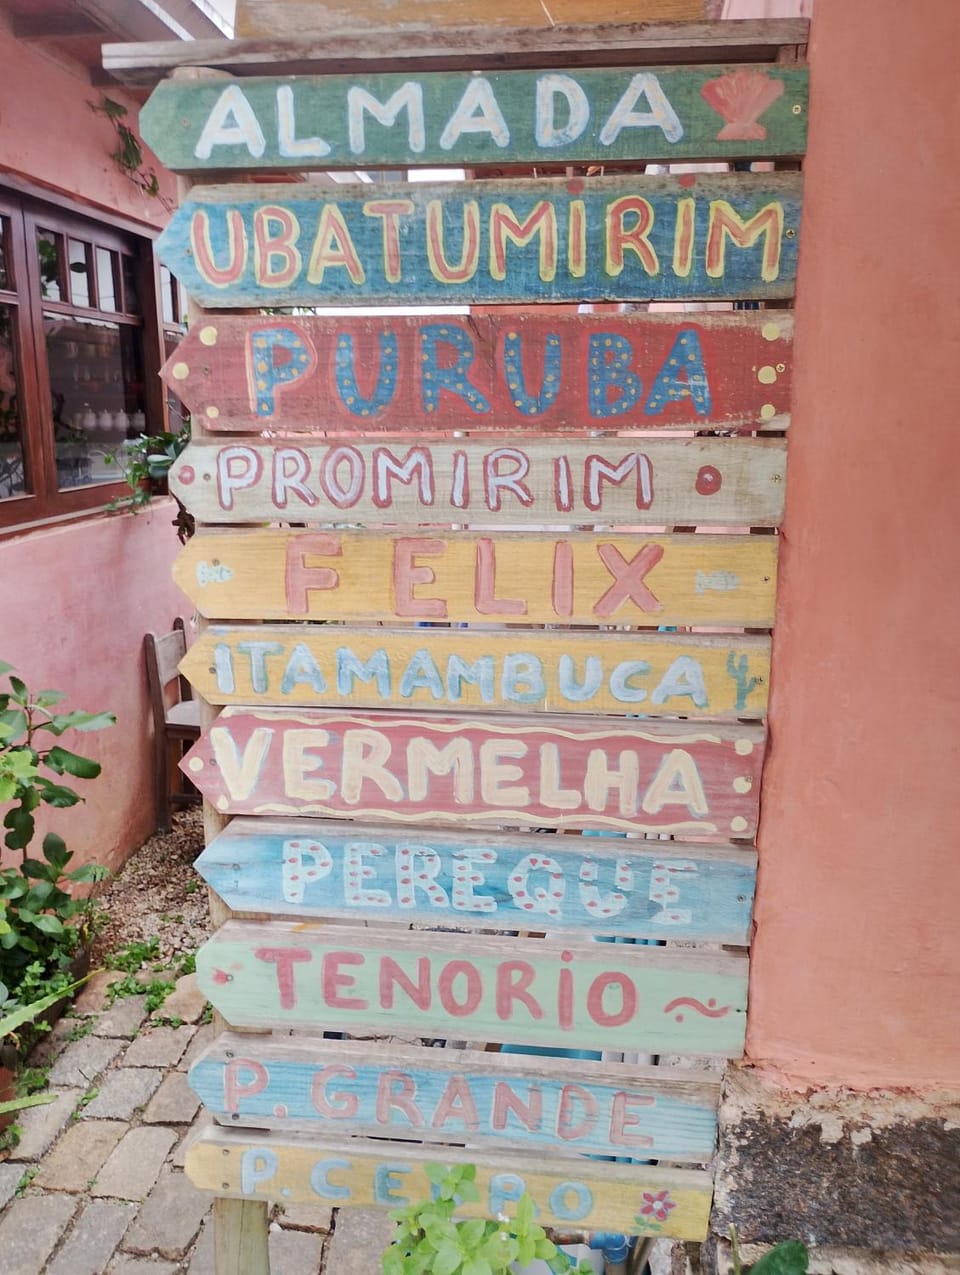 ALMADA
UBATUMIRIM
PURUBA
PROMIRIM
FELIX
ITAMAMBUCA
VERMELHA
PEREQUE
TENORIO
P. GRANDE
P. CEDRO